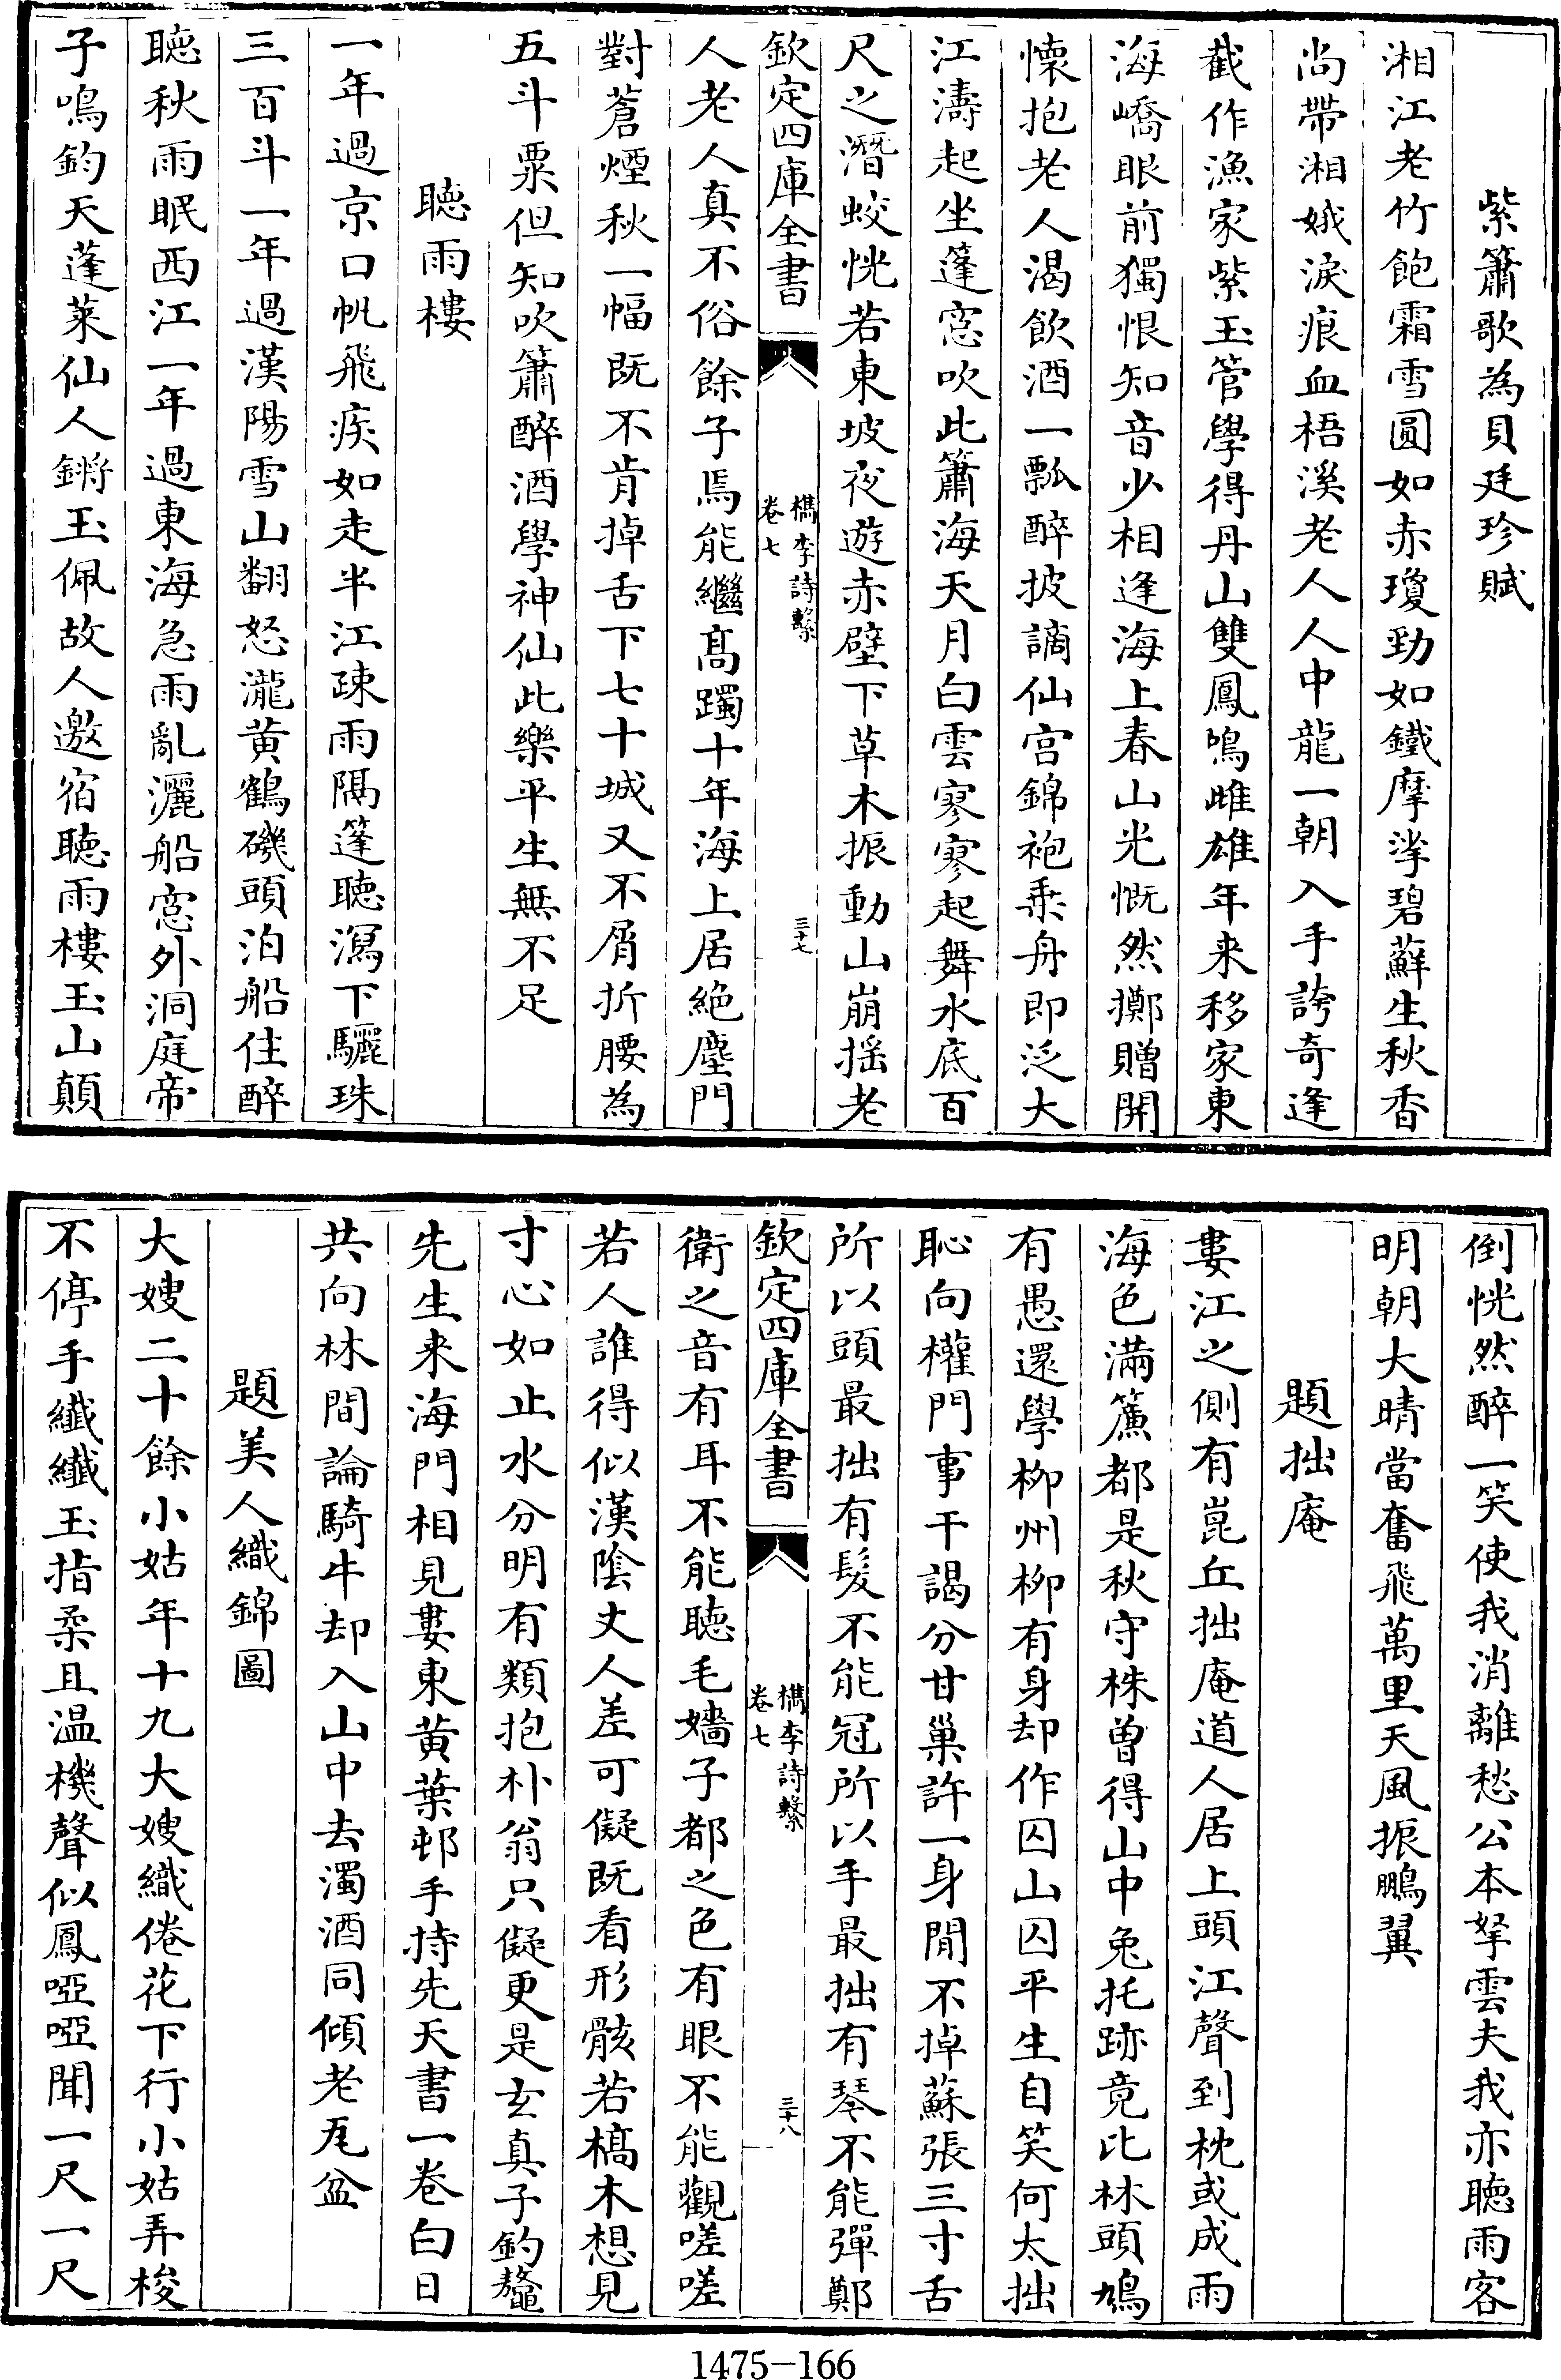 紫簫歌為貝廷珍賦
湘江老竹飽霜雪圓如赤瓊勁如鐵摩挲碧蘚生秋香
尚帶湘娥淚痕血梧溪老人人中龍一朝入手誇奇逢
截作漁家紫玉管學得丹山雙鳳鳴雌雄年来移家東
海嶠眼前獨恨知音少相逢海上春山光慨然擲贈開
懐抱老人渴飲酒一瓢醉披謫仙宫錦袍乗舟即泛大
江濤起坐篷窓吹此簫海天月白雲寥寥起舞水底百
尺之潛蛟恍若東坡夜遊赤壁下草木振動山崩揺老
欽定四庫全書
檇李詩繫
卷七
三十七
人老人真不俗餘子焉能繼髙躅十年海上居絶塵門
對蒼煙秋一幅既不肯掉舌下七十城又不屑折腰為
五斗粟但知吹簫醉酒學神仙此樂平生無不足
聽雨樓
一年過京口帆飛疾如走半江疎雨隔篷聽瀉下驪珠
三百斗一年過漢陽雪山翻怒瀧黄鶴磯頭泊船住醉
聽秋雨眠西江一年過東海急雨亂灑船窓外洞庭帝
子鳴鈞天蓬萊仙人鏘玉佩故人邀宿聽雨樓玉山顛
倒恍然醉一笑使我消離愁公本拏雲夫我亦聽雨客
明朝大晴當奮飛萬里天風振鵬翼
題拙庵
婁江之側有崑丘拙庵道人居上頭江聲到枕或成雨
海色滿簾都是秋守株曽得山中兔托跡竟比林頭鳩
有愚還學柳州柳有身却作囚山囚平生自笑何太拙
恥向權門事干謁分甘巢許一身閒不掉蘇張三寸舌
所以頭最拙有髮不能冠所以手最拙有琴不能彈鄭
欽定四庫全書
檇李詩繫
卷七
三十八
衛之音有耳不能聽毛嫱子都之色有眼不能觀嗟嗟
若人誰得似漢陰丈人差可儗既看形骸若槁木想見
寸心如止水分明有類抱朴翁只儗更是玄真子釣鼇
先生来海門相見婁東黄葉邨手持先天書一卷白日
共向林間論騎牛却入山中去濁酒同傾老瓦盆
題美人織錦圖
大嫂二十餘小姑年十九大嫂織倦花下行小姑弄梭
不停手纖纖玉指柔且温機聲似鳳啞啞聞一尺一尺
1475-166